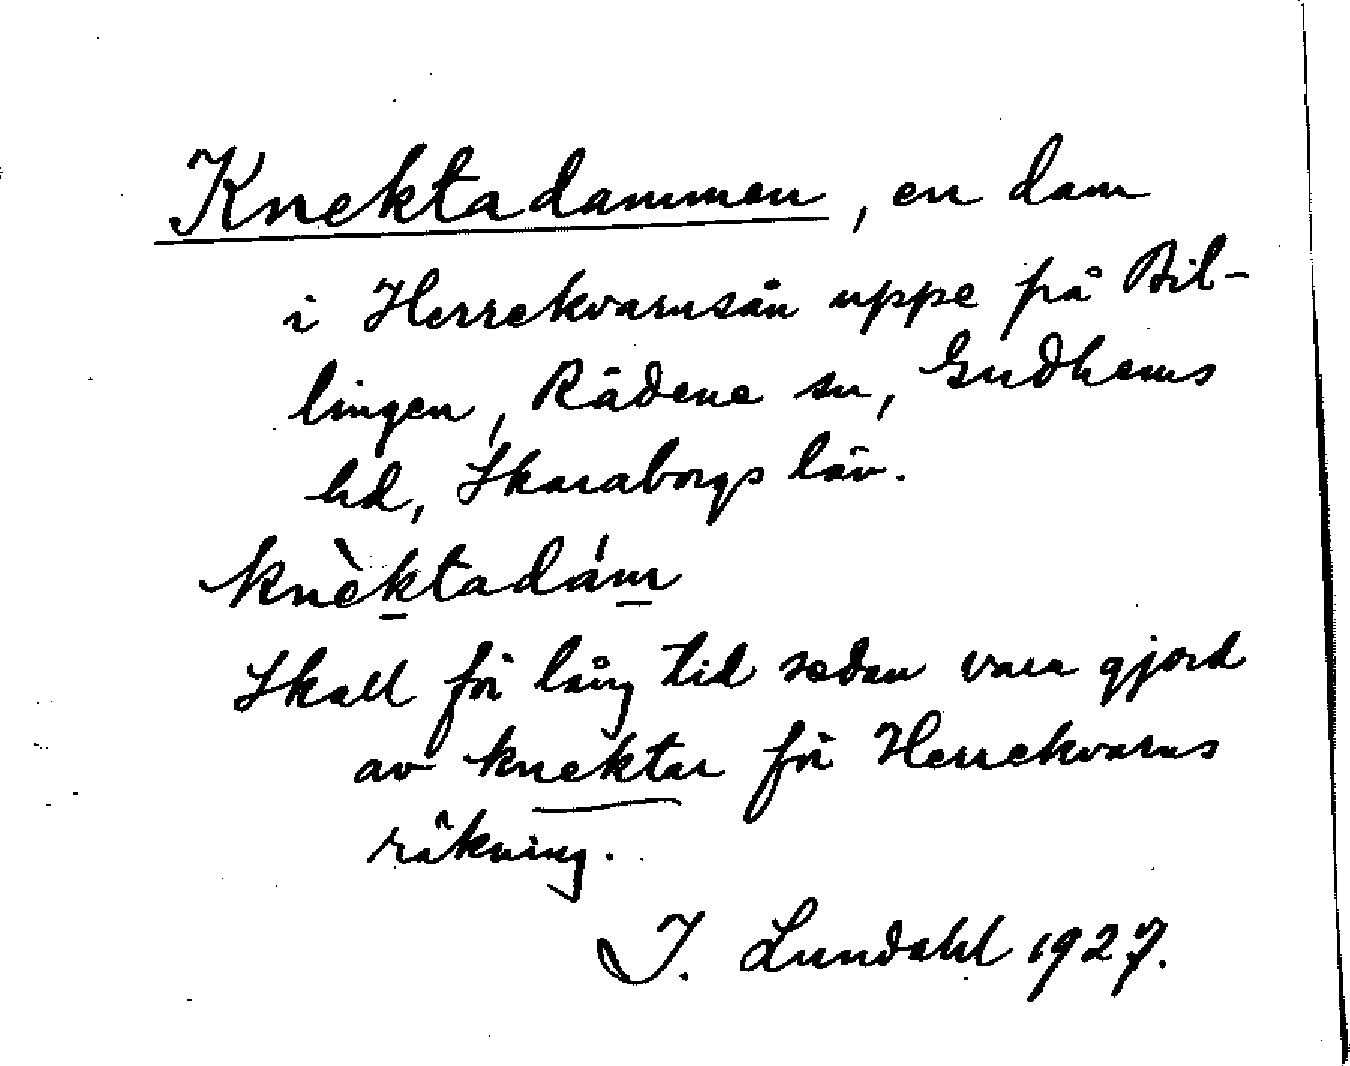 Knektadammen, en dam
i Herrekvarnsån uppe på Bil-
lingen, Rådene sn, Gudhems
hd, Skaraborgs län.
knèktadám
Skall för lång tid sedan vara gjord
av knektar för Herrekvarns
räkning.
I. Lundahl 1927.